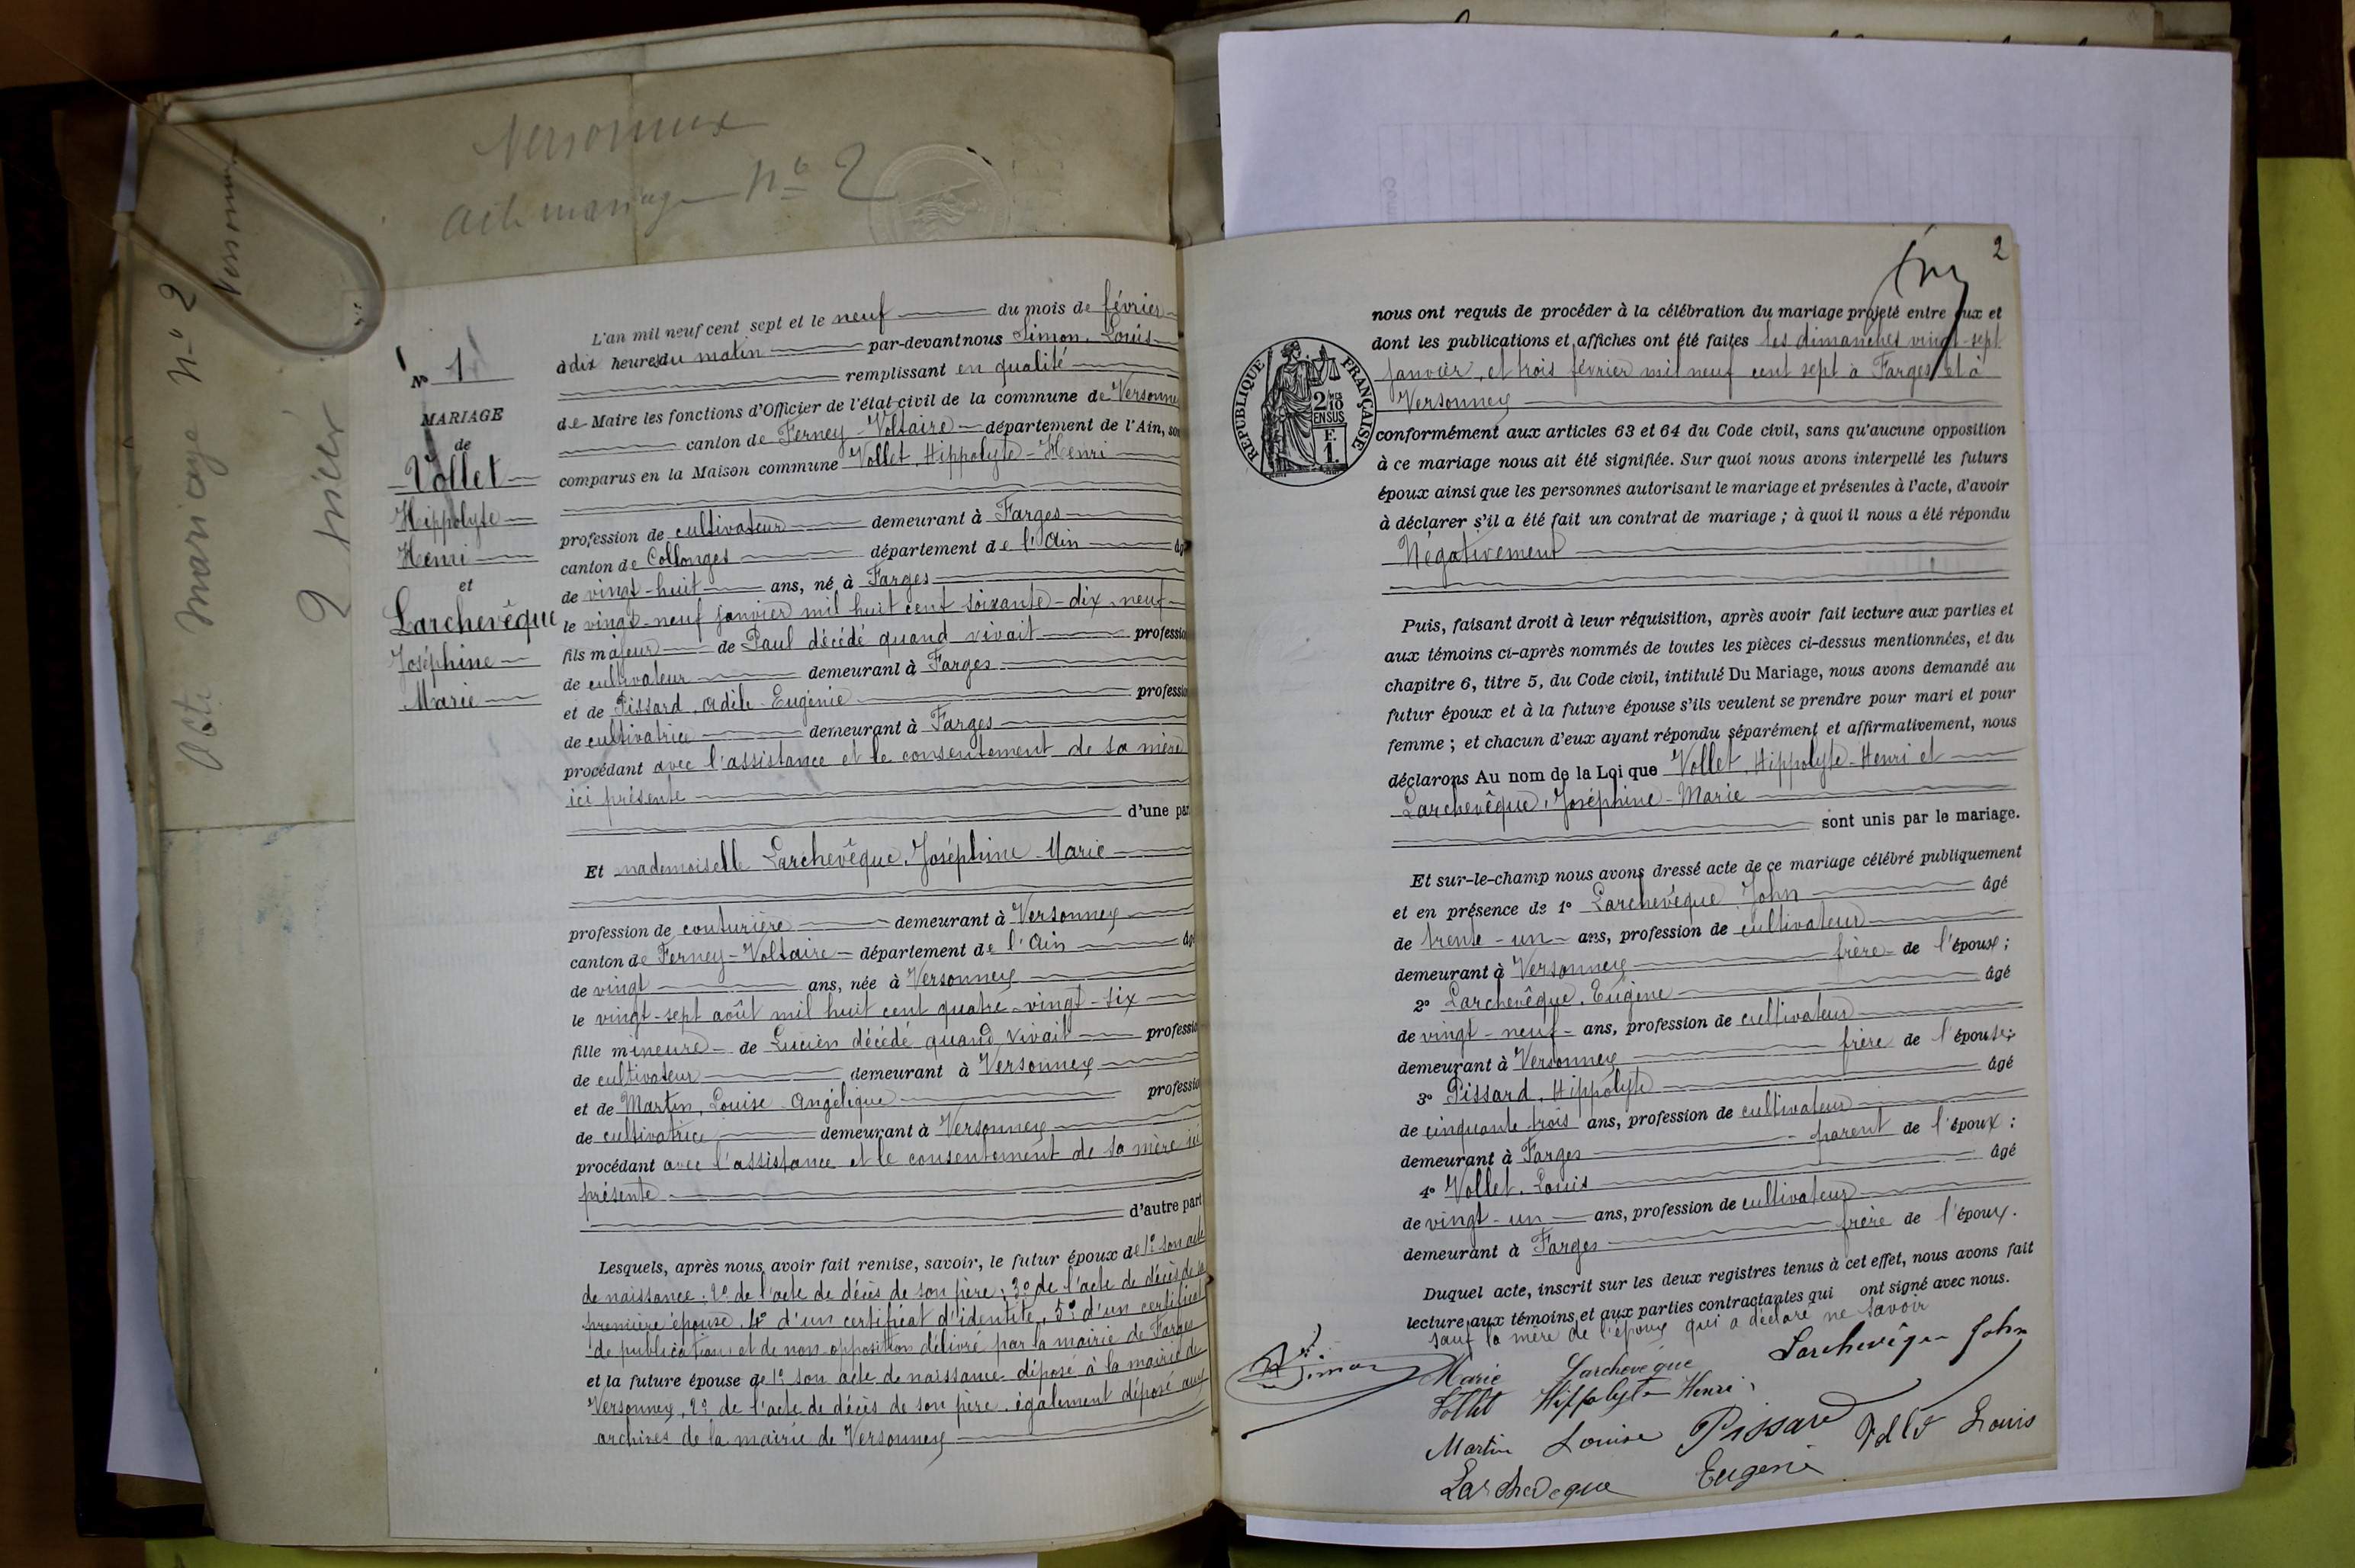 Versonnex
Acte mariage n° 2
Versonnex
Acte mariage n° 2
N° 1
MARIAGE
de
Vollet
Hippolyte
Henri
et
Larchevêque
Joséphine
Marie
L'an mil neuf cent sept et le neuf du mois de février
à dix heures du matin par-devant nous Simon, Louis
remplissant en qualité
de Maire les fonctions d'Officier de l'état civil de la commune de Versonne
canton de Ferney-Voltaire département de l'Ain, son
comparus en la Maison commune Vollet, Hippolyte-Henri
profession de cultivateur demeurant à Farges
canton de Collonges département de l'Ain âg
de vingt-huit ans, né à Farges
le vingt-neuf janvier mil huit cent soixante-dix-neuf
fils majeur de Paul décédé quand vivait professio
de cultivateur demeurant à Farges
et de Pissard, Adèle-Eugénie professio
de cultivatrice demeurant à Farges
procédant avec l'assistance et le consentement de sa mère
ici présente
d'une par
Et mademoiselle Larchevêque, Joséphine-Marie
profession de couturière demeurant à Versonnex
canton de Ferney-Voltaire département de l'Ain âg
de vingt ans, née à Versonnex
le vingt-sept août mil huit cent quatre-vingt-six
fille mineure de Lucien décédé quand vivait professio
de cultivateur demeurant à Versonnex
et de Martin, Louise-Angélique professio
de cultivatrice demeurant à Versonnex
procédant avec l'assistance et le consentement de sa mère ici
présente
d'autre part
Lesquels, après nous avoir fait remise, savoir, le futur époux de 1° son acte
de naissance; 2° de l'acte de décès de son père; 3° de l'acte de décès de sa
première épouse, 4° d'un certificat d'identité, 5° d'un certificat
de publication et de non opposition délivré par la mairie de Farges
et la future épouse de 1° son acte de naissance déposé à la mairie de
Versonnex, 2° de l'acte de décès de son père, également déposé aux
archives de la mairie de Versonnex
2
nous ont requis de procéder à la célébration du mariage projeté entre eux et
dont les publications et affiches ont été faites les dimanches vingt-sept
janvier, et trois février mil neuf cent sept à Farges et à
Versonnex
REPUBLIQUE FRANÇAISE
2/10
EN SUS
F.
1.
conformément aux articles 63 et 64 du Code civil, sans qu'aucune opposition
à ce mariage nous ait été signifiée. Sur quoi nous avons interpellé les futurs
époux ainsi que les personnes autorisant le mariage et présentes à l'acte, d'avoir
à déclarer s'il a été fait un contrat de mariage; à quoi il nous a été répondu
Négativement
Puis, faisant droit à leur réquisition, après avoir fait lecture aux parties et
aux témoins ci-après nommés de toutes les pièces ci-dessus mentionnées, et du
chapitre 6, titre 5, du Code civil, intitulé Du Mariage, nous avons demandé au
futur époux et à la future épouse s'ils veulent se prendre pour mari et pour
femme; et chacun d'eux ayant répondu séparément et affirmativement, nous
déclarons Au nom de la Loi que Vollet, Hippolyte-Henri et
Larchevêque, Joséphine-Marie
sont unis par le mariage.
Et sur-le-champ nous avons dressé acte de ce mariage célébré publiquement
et en présence de 1° Larchevêque John âgé
de trente-un ans, profession de cultivateur
demeurant à Versonnex frère de l'épouse;
2° Larchevêque, Eugène âgé
de vingt-neuf ans, profession de cultivateur
demeurant à Versonnex frère de l'épouse;
3° Pissard, Hippolyte âgé
de cinquante-trois ans, profession de cultivateur
demeurant à Farges parent de l'époux;
4° Vollet, Louis âgé
de vingt-un ans, profession de cultivateur
demeurant à Farges frère de l'époux.
Duquel acte, inscrit sur les deux registres tenus à cet effet, nous avons fait
lecture aux témoins et aux parties contractantes qui ont signé avec nous.
sauf la mère de l'époux qui a déclaré ne savoir
Simon Marie Larcheveque Larchevêque John
Vollet Hippolyte Henri
Martin Louise Pissard Louis
Larcheveque Eugène